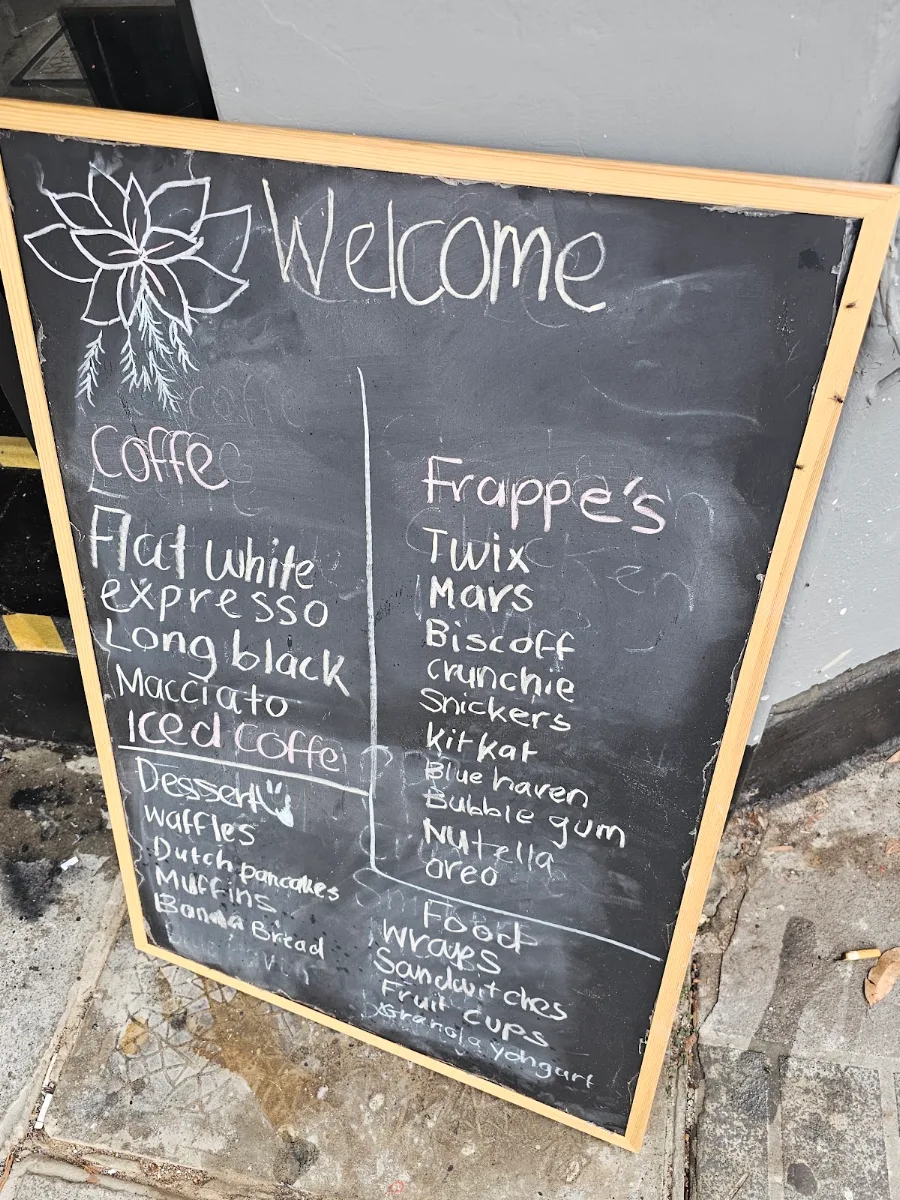 Welcome
Coffe
Flat white
expresso
Long black
Macciato
Iced Coffe
Dessert
waffles
Dutch pancakes
Muffins
Banana Bread
Frappe's
Twix
Mars
Biscoff
crunchie
Snickers
kitkat
Blue haven
Bubble gum
Nutella
oreo
Food
Wraps
Sandwitches
Fruit cups
Granola yohgurt